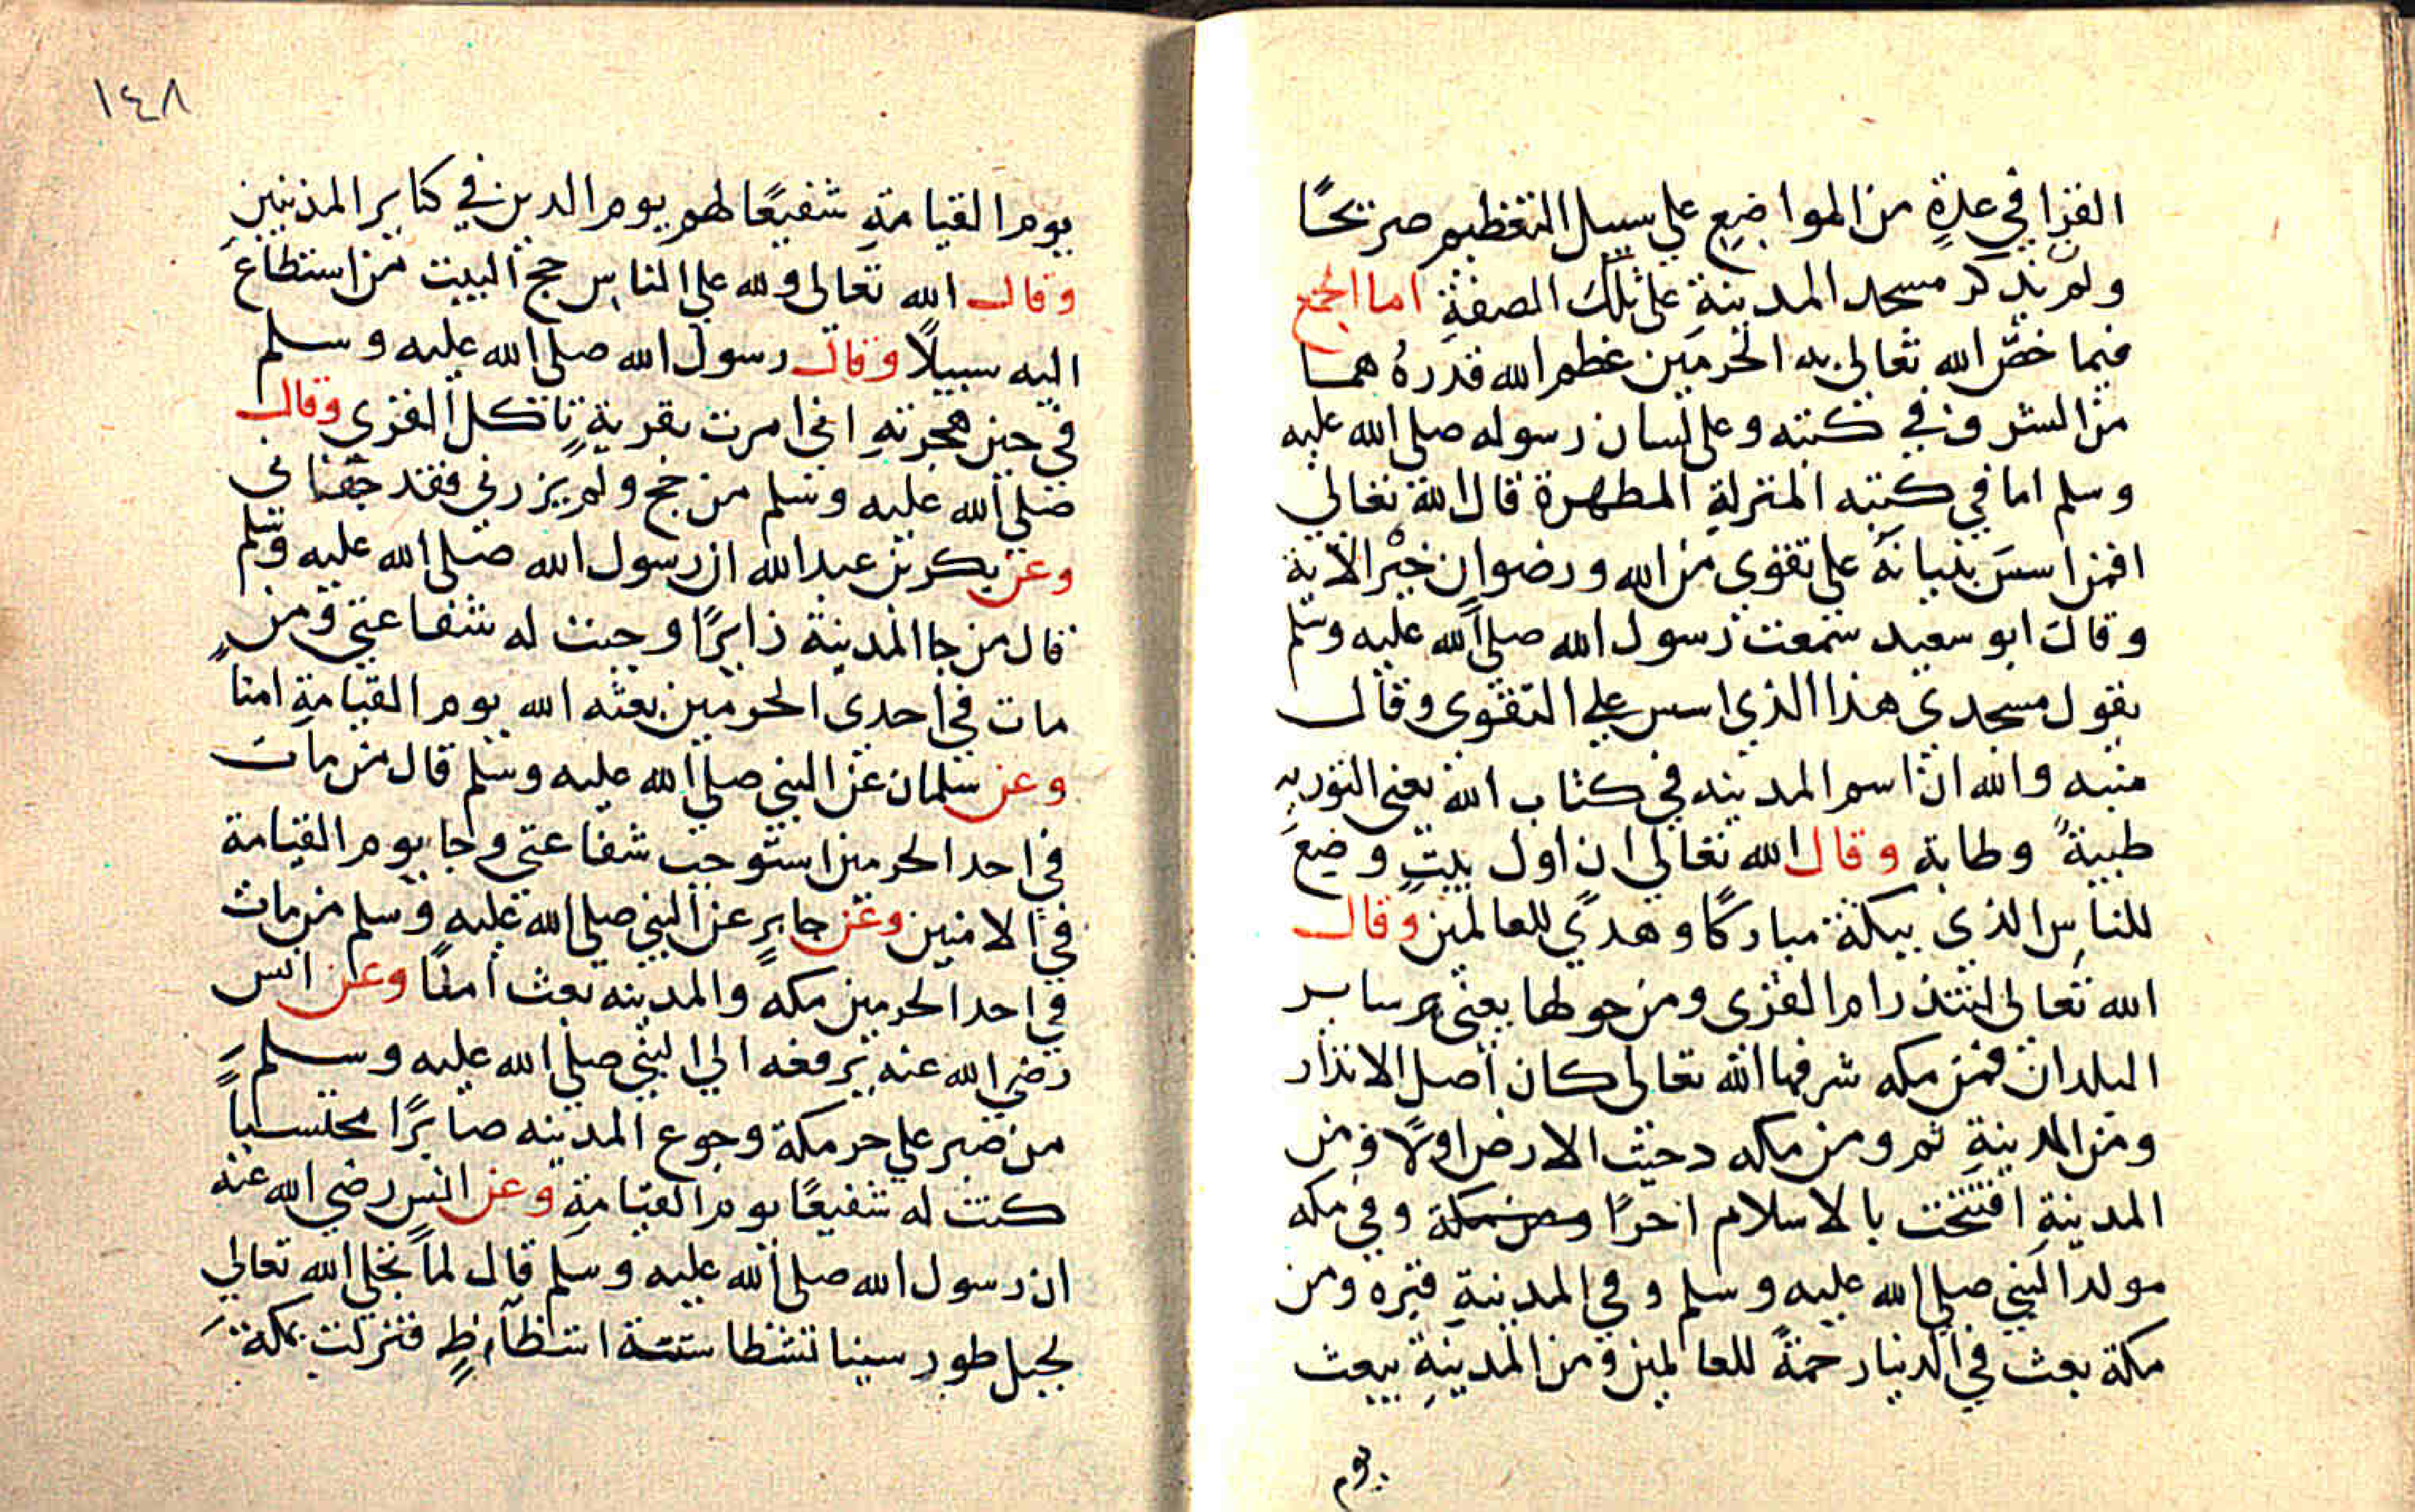 القرا في عدة من المواضع علي سبيل التعظيم صريحًا
ولم يذكر مسجد المدينة على تلك الصفة اما الجمع
فيما خص الله تعالى به الحرمين عظم الله قدره هما
من الشرف في كتبه وعلى لسان رسوله صلى الله عليه
وسلم اما في كتبه المنزلة المطهرة قال الله تعالى
افمن اسس بنيانه على تقوى من الله ورضوان خير الاية
وقال ابو سعيد سمعت رسول الله صلى الله عليه وسلم
يقول مسجدي هذا الذي اسس على التقوى وقال
منبه والله ان اسم المدينه في كتاب الله يعني التوريه
طيبة وطابة وقال الله تعالى ان اول بيت وضع
للناس الذي ببكة مباركًا وهدي للعالمين وقال
الله تعالى لتنذر ام القرى ومن حولها يعني ساير
البلدان فمن مكه شرفها الله تعالى كان اصل الانذار
ومن المدينة ثم ومن مكه دحيت الارض اولا ومن
المدينة افتتحت بالاسلام اخرًا ومن مكة وفي مكه
مولد النبي صلى الله عليه وسلم وفي المدينة قبره ومن
مكة بعث في الدنيا رحمة للعالمين ومن المدينة يبعث
يوم
١٤٨
يوم القيامة شفيعًا لهم يوم الدين في كباير المذنبين
وقال الله تعالى ولله على الناس حج البيت من استطاع
اليه سبيلًا وقال رسول الله صلى الله عليه وسلم
في حين هجرته اني امرت بقرية تاكل القرى وقال
صلى الله عليه وسلم من حج ولم يزرني فقد جفاني
وعن بكر بن عبد الله ان رسول الله صلى الله عليه وسلم
قال من جا المدينة زايرًا وجبت له شفاعتي ومن
مات في احدى الحرمين بعثه الله يوم القيامة امنا
وعن سلمان عن النبي صلى الله عليه وسلم قال من مات
في احد الحرمين استوجب شفاعتي وجا يوم القيامة
في الامنين وعن جابر عن النبي صلى الله عليه وسلم من مات
في احد الحرمين مكه والمدينه بعث امنًا وعن انس
رضي الله عنه يرفعه الى النبي صلى الله عليه وسلم
من صبر على حر مكة وجوع المدينه صابرًا محتسباً
كنت له شفيعًا يوم القيامة وعن انس رضي الله عنه
ان رسول الله صلى الله عليه وسلم قال لما تجلى الله تعالى
لجبل طور سينا تشظا ستة اشظاظ فنزلت بمكة